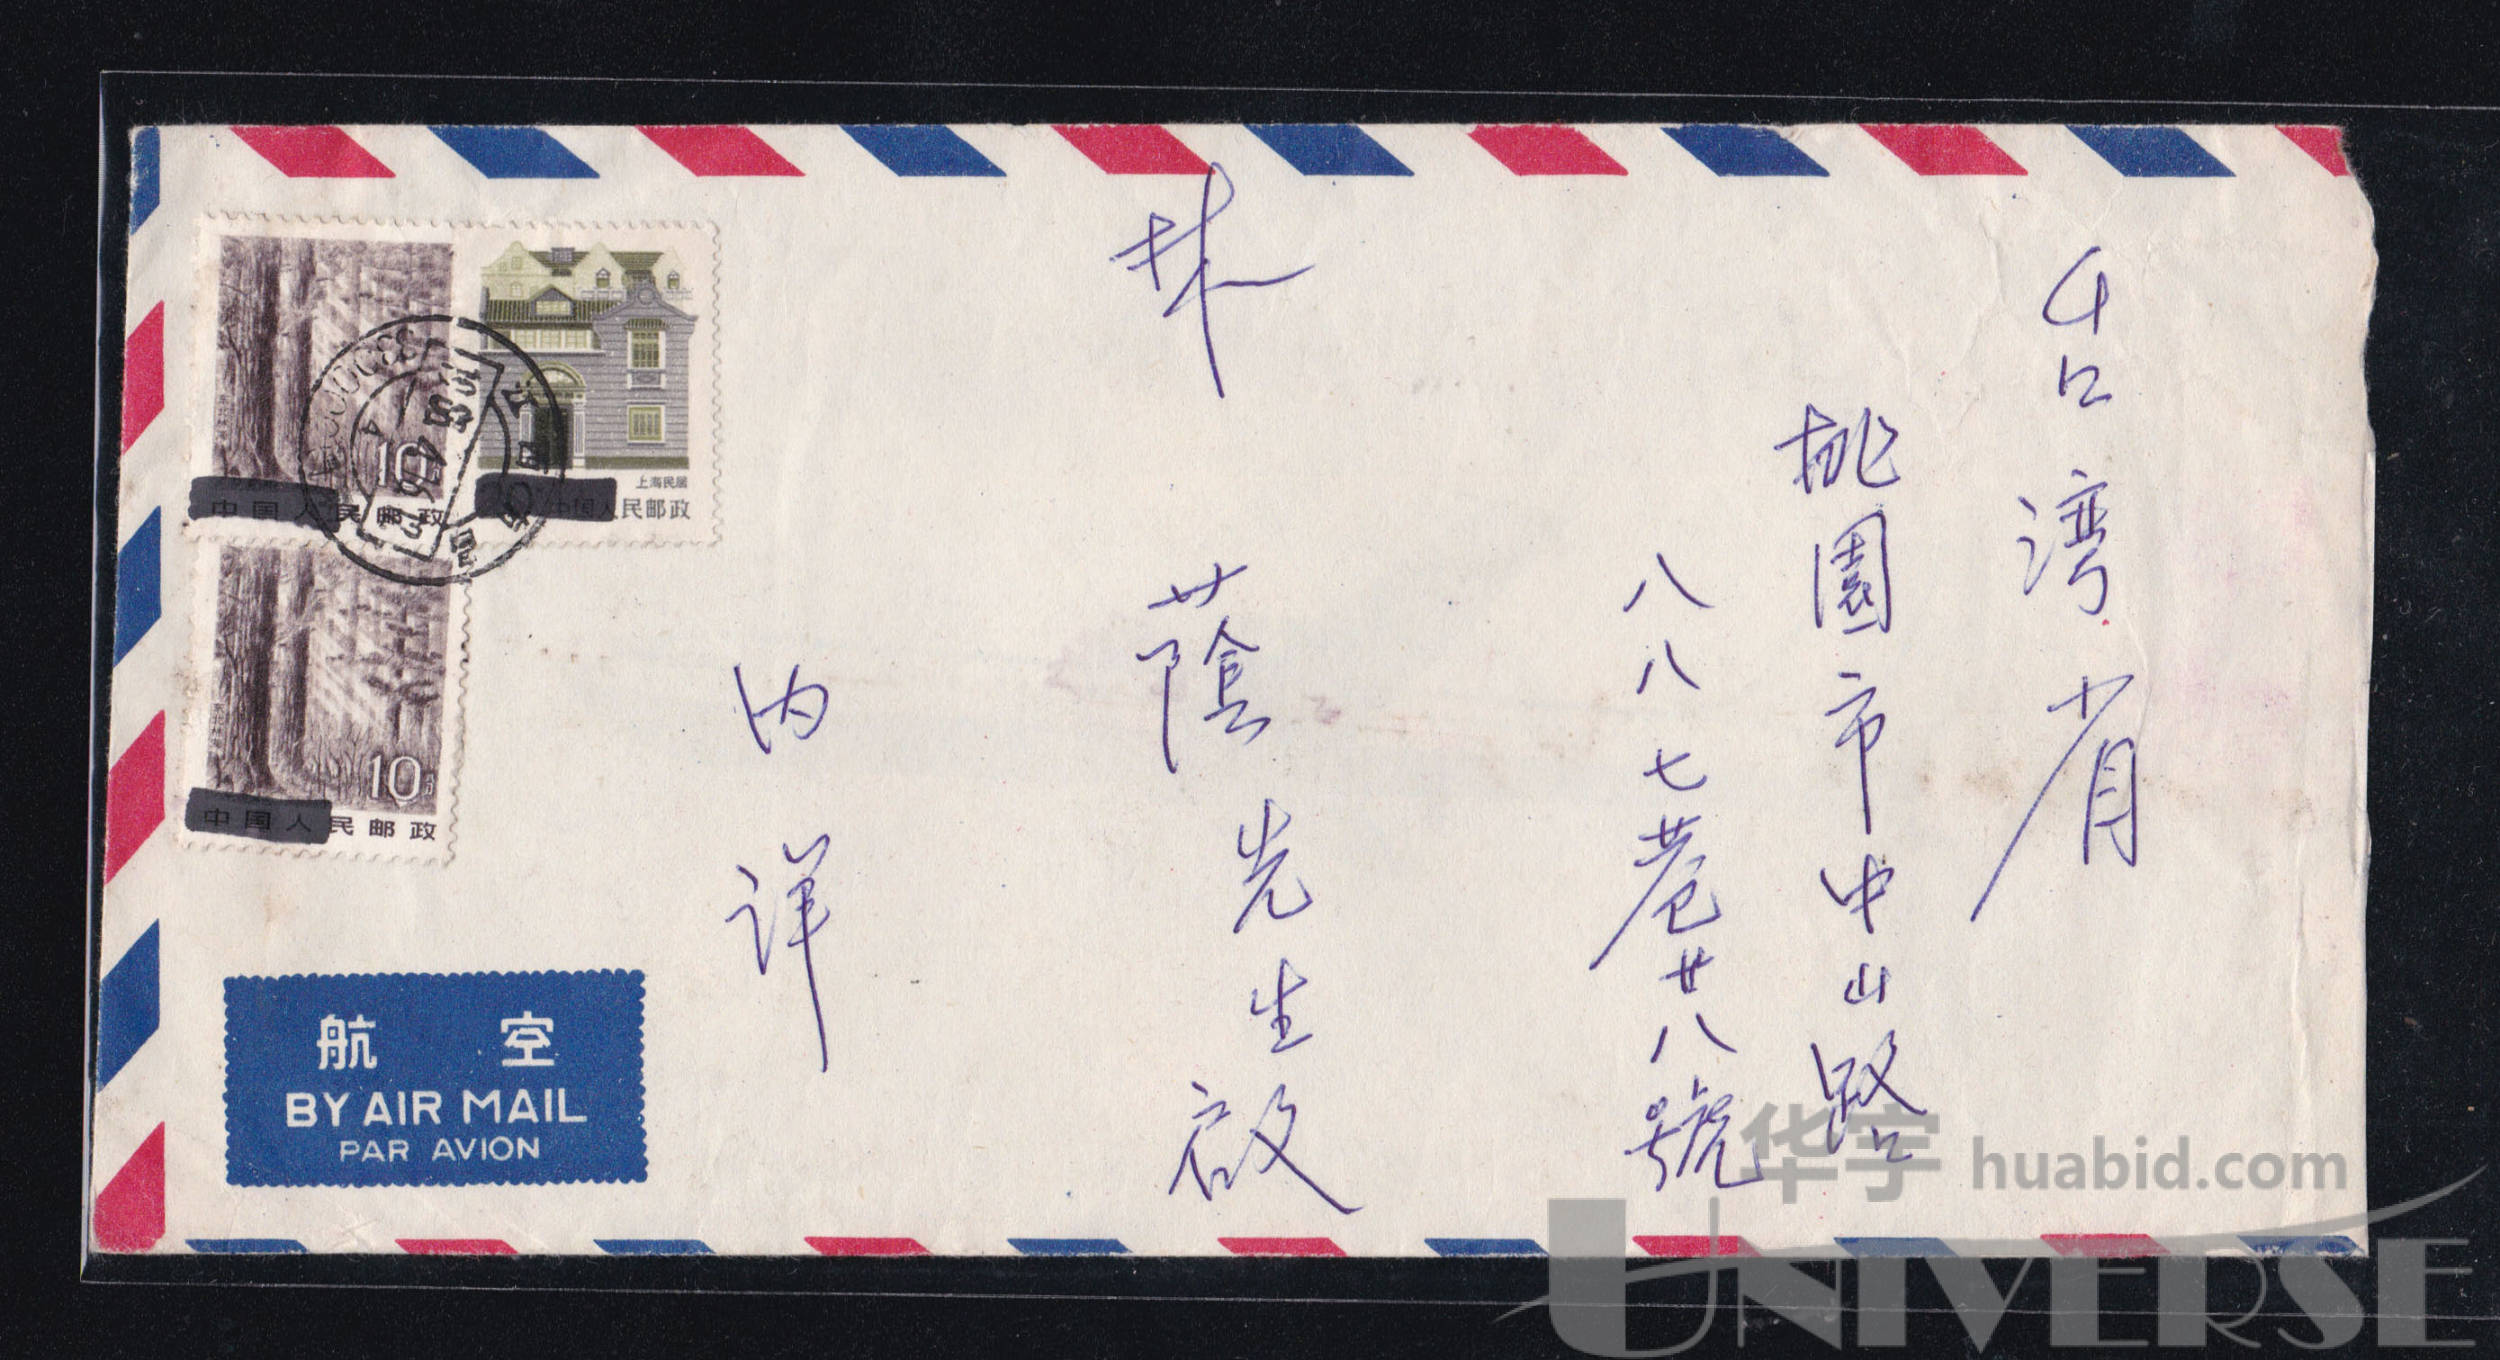 台湾省
桃園市中山路
八八七巷廿八號
林蔭先生啟
内详
10分
上海民居
中国人民邮政
中国人民邮政
10分
中国人民邮政
江西
航空
BY AIR MAIL
PAR AVION
华宇 huabid.com
UNIVERSE